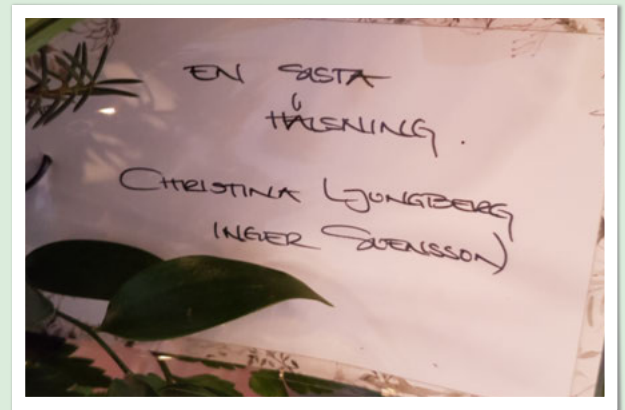 EN SISTA
HÄLSNING.
CHRISTINA LJUNGBERG
INGER SVENSSON